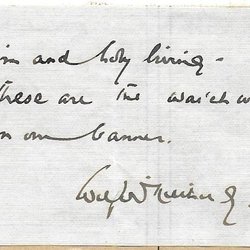 and holy living -
these are the watchw
on our banner.